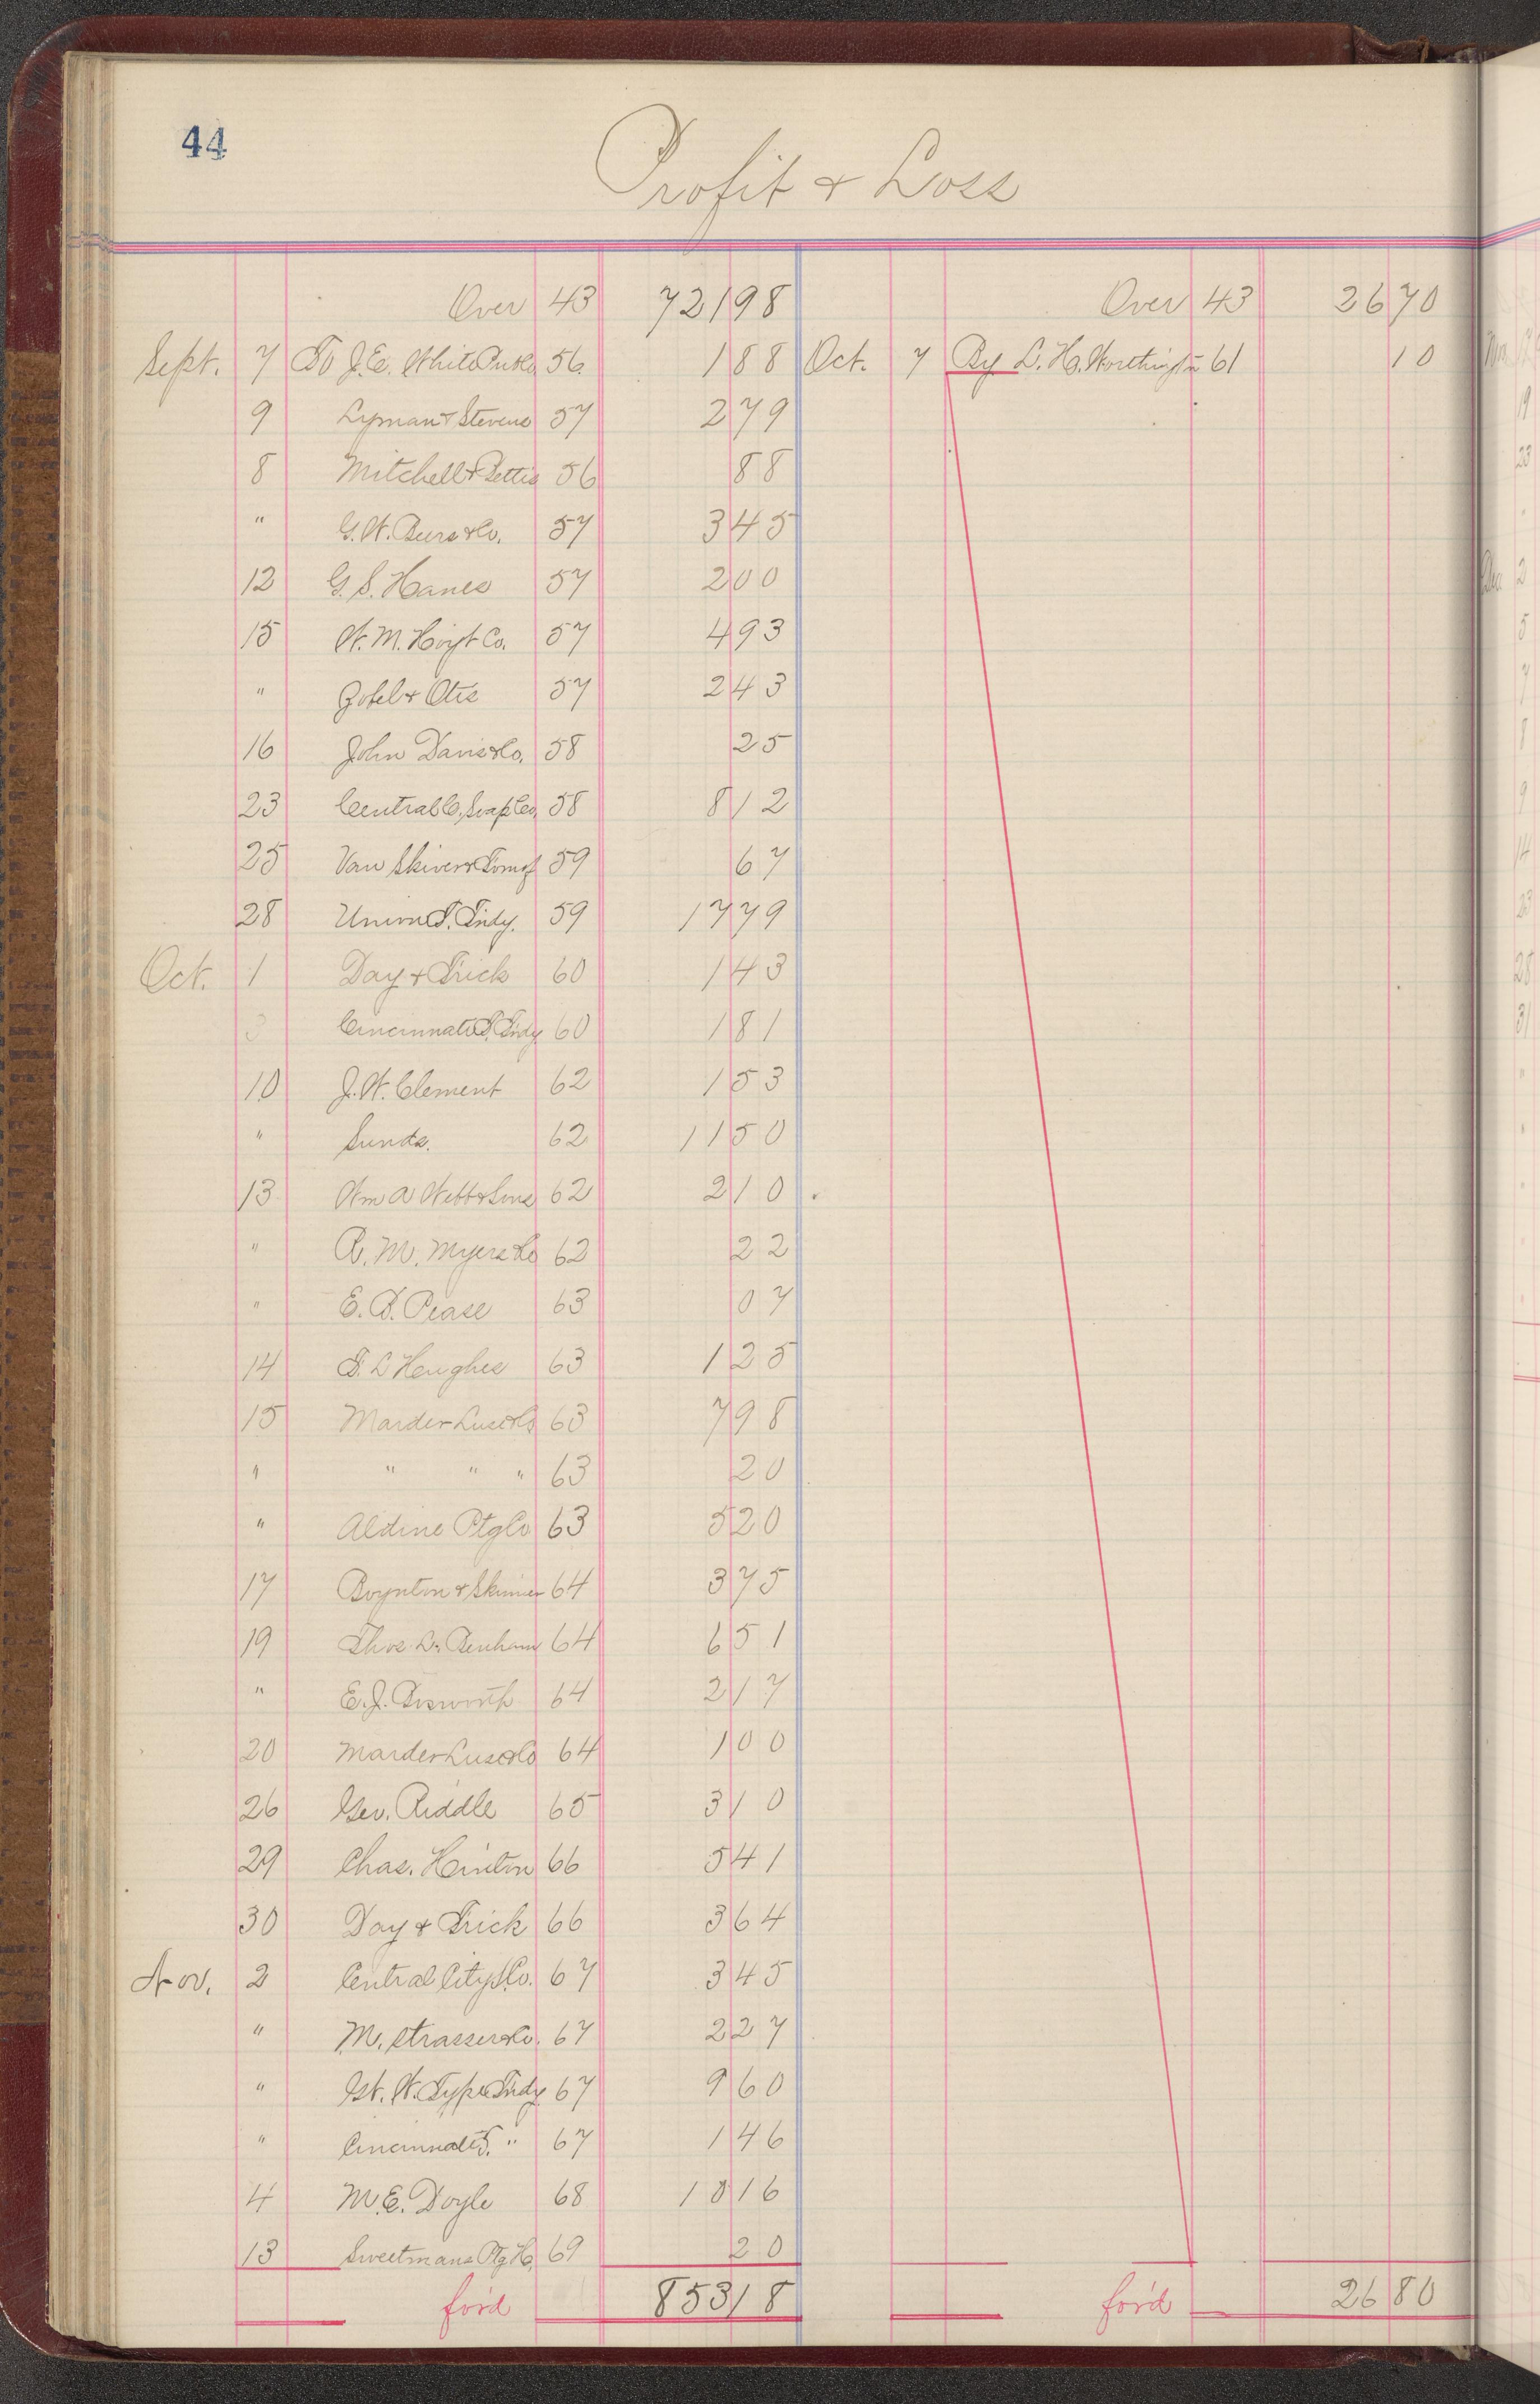 44
Profit & Loss
Over 43 721 98 Over 43 26 70
Sept. 7 To J.E. White Pub Co 56 1 88 Oct. 7 By L. H. Worthington 61 10
9 Lyman & Stevens 57 2 79
8 Mitchell & Bettis 56 88
" G.W. Beers & Co. 57 3 45
12 G. S. Hanes 57 2 00
15 W. M. Hoyt Co. 57 4 93
" & Otis 57 2 43
16 John Davis & Co. 58 25
23 Central C. Soap Co. 58 8 12
25 Van Skiver & 59 67
28 Union T. Fndy. 59 17 79
Oct. 1 Day & Frick 60 1 43
3 Cincinnati T. Fndy 60 1 81
10 J. W. Clement 62 1 53
" Sunds. 62 11 50
13 Wm A Webb & Sons 62 2 10
" R. M. Myers & Co 62 22
" E. D. Pease 63 07
14 T. L Hughes 63 1 25
15 Marder Luse & Co 63 7 98
" " " " 63 20
" Aldine Ptg Co 63 5 20
17 Boynton & Skinner 64 3 75
19 Thos. L. Benham 64 6 51
" E. J. Bosworth 64 2 17
20 Marder Luse & Co 64 1 00
26 Geo. Riddle 65 3 10
29 Chas. Hinton 66 5 41
30 Day & Frick 66 3 64
Nov. 2 Central City S. Co. 67 3 45
" M. Strasser & Co. 67 2 27
" Gt. W. Type Fndy 67 9 60
" Cincinnati T. " 67 1 46
4 M. E. Doyle 68 10 16
13 Sweetmans Ptg H. 69 20
for'd 853 18 for'd 26 80